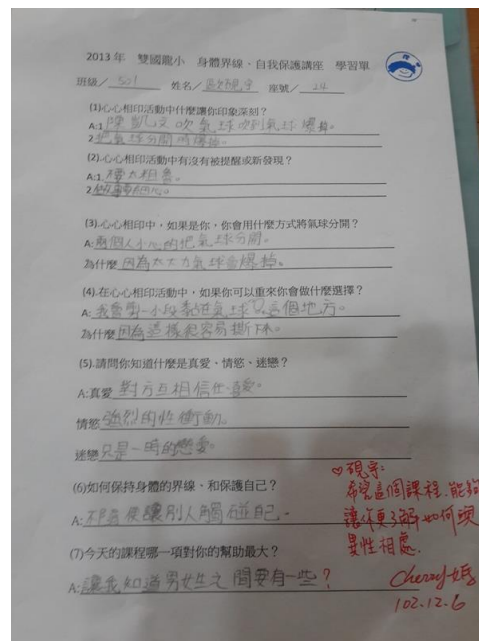 2013年 雙國龍小 身體界線、自我保護講座 學習單
班級/ 501 姓名/ 硯宇 座號/ 24
(1)心心相印活動中什麼讓你印象深刻？
A:1.陳凱文吹氣球吹到氣球爆掉。
2.把氣球分開時爆掉。
(2).心心相印活動中有沒有被提醒或新發現？
A:1.太粗魯。
2.做事要細心。
(3).心心相印中，如果是你，你會用什麼方式將氣球分開？
A:兩個人小心的把氣球分開。
為什麼 因為太大力氣球會爆掉。
(4).在心心相印活動中，如果你可以重來你會做什麼選擇？
A:我會剪一小段黏在氣球這個地方。
為什麼 因為這樣很容易撕下來。
(5).請問你知道什麼是真愛、情慾、迷戀？
A:真愛 對方互相信任、喜愛。
情慾 強烈的性衝動。
迷戀 只是一時的戀愛。
(6)如何保持身體的界線、和保護自己？
A:不會讓別人觸碰自己。
(7)今天的課程哪一項對你的幫助最大？
A:讓我知道男女生之間要有一些？
♡硯宇:
希望這個課程.能夠
讓你更了解如何與
異性相處.
Cherry媽
102.12.6